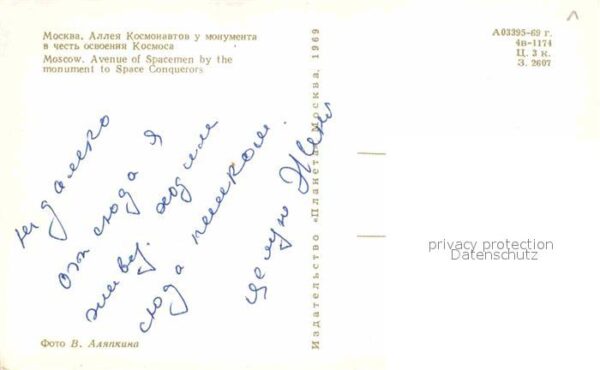 Москва. Аллея Космонавтов у монумента
в честь освоения Космоса
Moscow. Avenue of Spacemen by the
monument to Space Conquerors
А03395-69 г.
4в-1174
Ц. 3 к.
З. 2607
не далеко
от сюда я
живу. ходили
сюда пешком.
целую Женя
Издательство «Планета» Москва, 1969
privacy protection
Datenschutz
Фото В. Аляпкина